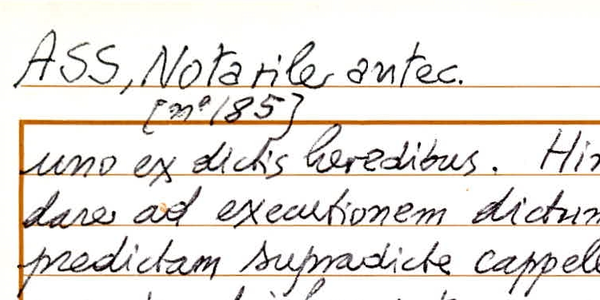 ASS, Notarile antec.
[n° 185]
uno ex dictis heredibus. Hin
dare ad executionem dictum
predictam supradicte cappelle